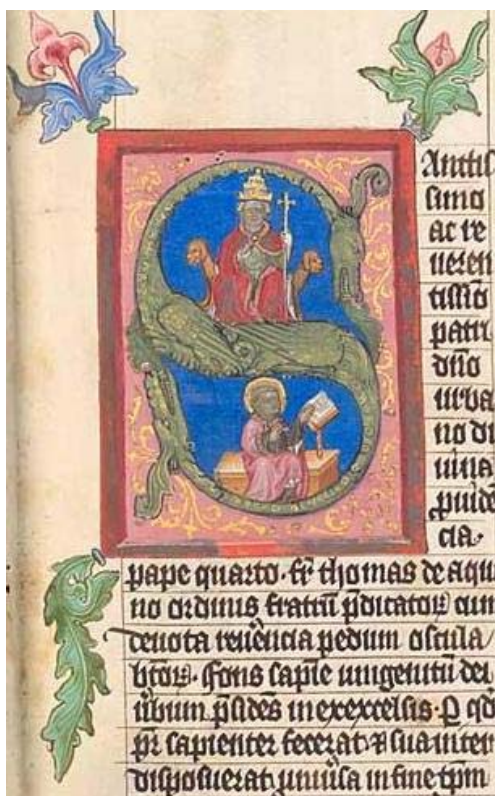 S
Anctis
simo
ac re
ueren
tissīo
patri
dn̄o
urba
no di
uina
ꝓuidē
cia.
pape quarto. fr̄ thomas de aqui
no ordinis fratrū p̄dicatoꝝ cum
deuota reuēncia pedum oscula
btōꝝ. Fons sapīe unigenitū dei
ūbum p̄sidēs in exexcelsis. ꝑ qd̄
pr̄ sapienter fecerat ⁊ suauiter
disposuerat uniūsa in fine tp̄m